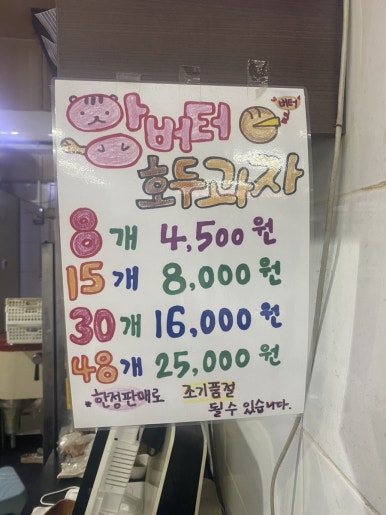 앙버터
버터
호두과자
8개 4,500원
15개 8,000원
30개 16,000원
48개 25,000원
한정판매로 조기품절
될 수 있습니다.